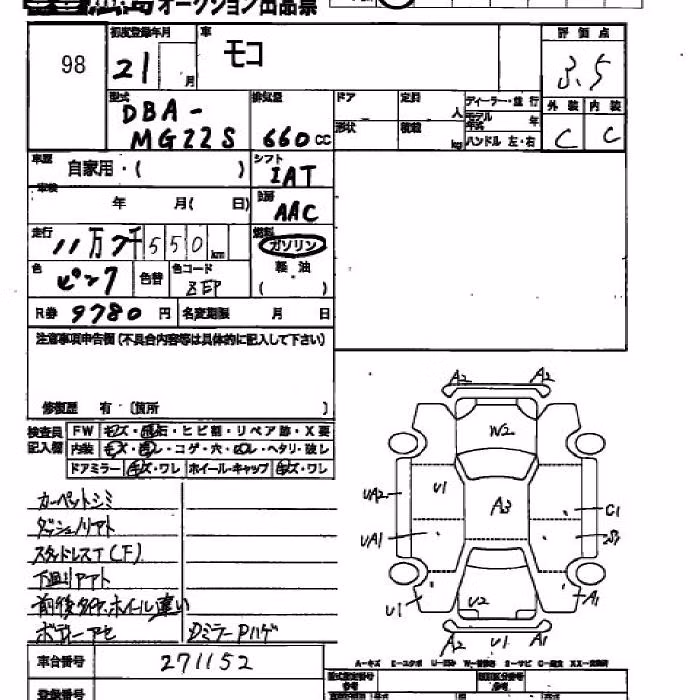 オークション出品票
98
初度登録年月
21 月
車
モコ
評価点
3.5
型式
DBA-
MG22S
排気量
660cc
ドア
定員 人
ディーラー・並行
モデル年式 年
外装 内装
形状
積載 kg
ハンドル 左・右
C C
車歴
自家用・( )
シフト
IAT
車検
年 月( 日)
冷房
AAC
走行
11万7千550km
燃料
ガソリン
軽油
( )
色
ピンク
色替
色コード
ZEP
R券 9780円
名変期限 月 日
注意事項申告欄(不具合内容等は具体的に記入して下さい)
修復歴 有 〔箇所 〕
検査員
記入欄
FW キズ・飛石・ヒビ割・リペア跡・X要
内装 キズ・汚レ・コゲ・穴・ ・ヘタリ・破レ
ドアミラー キズ・ワレ ホイールキャップ キズ・ワレ
カーペットシミ
ダッシュノリアト
スタッドレスT(F)
下回りサビ
前後 ホイール違い
ボディーアセ
DミラーPハゲ
車台番号 271152
登録番号
A2 A2
W2
U1
A3
UA2
C1
UA1
U1
U2
A1
A2 U1 A1
A-キズ E-エクボ U-凹み W-補修跡 S-サビ C-腐食 XX-交換済
型式指定番号
参考
類別区分番号
参考